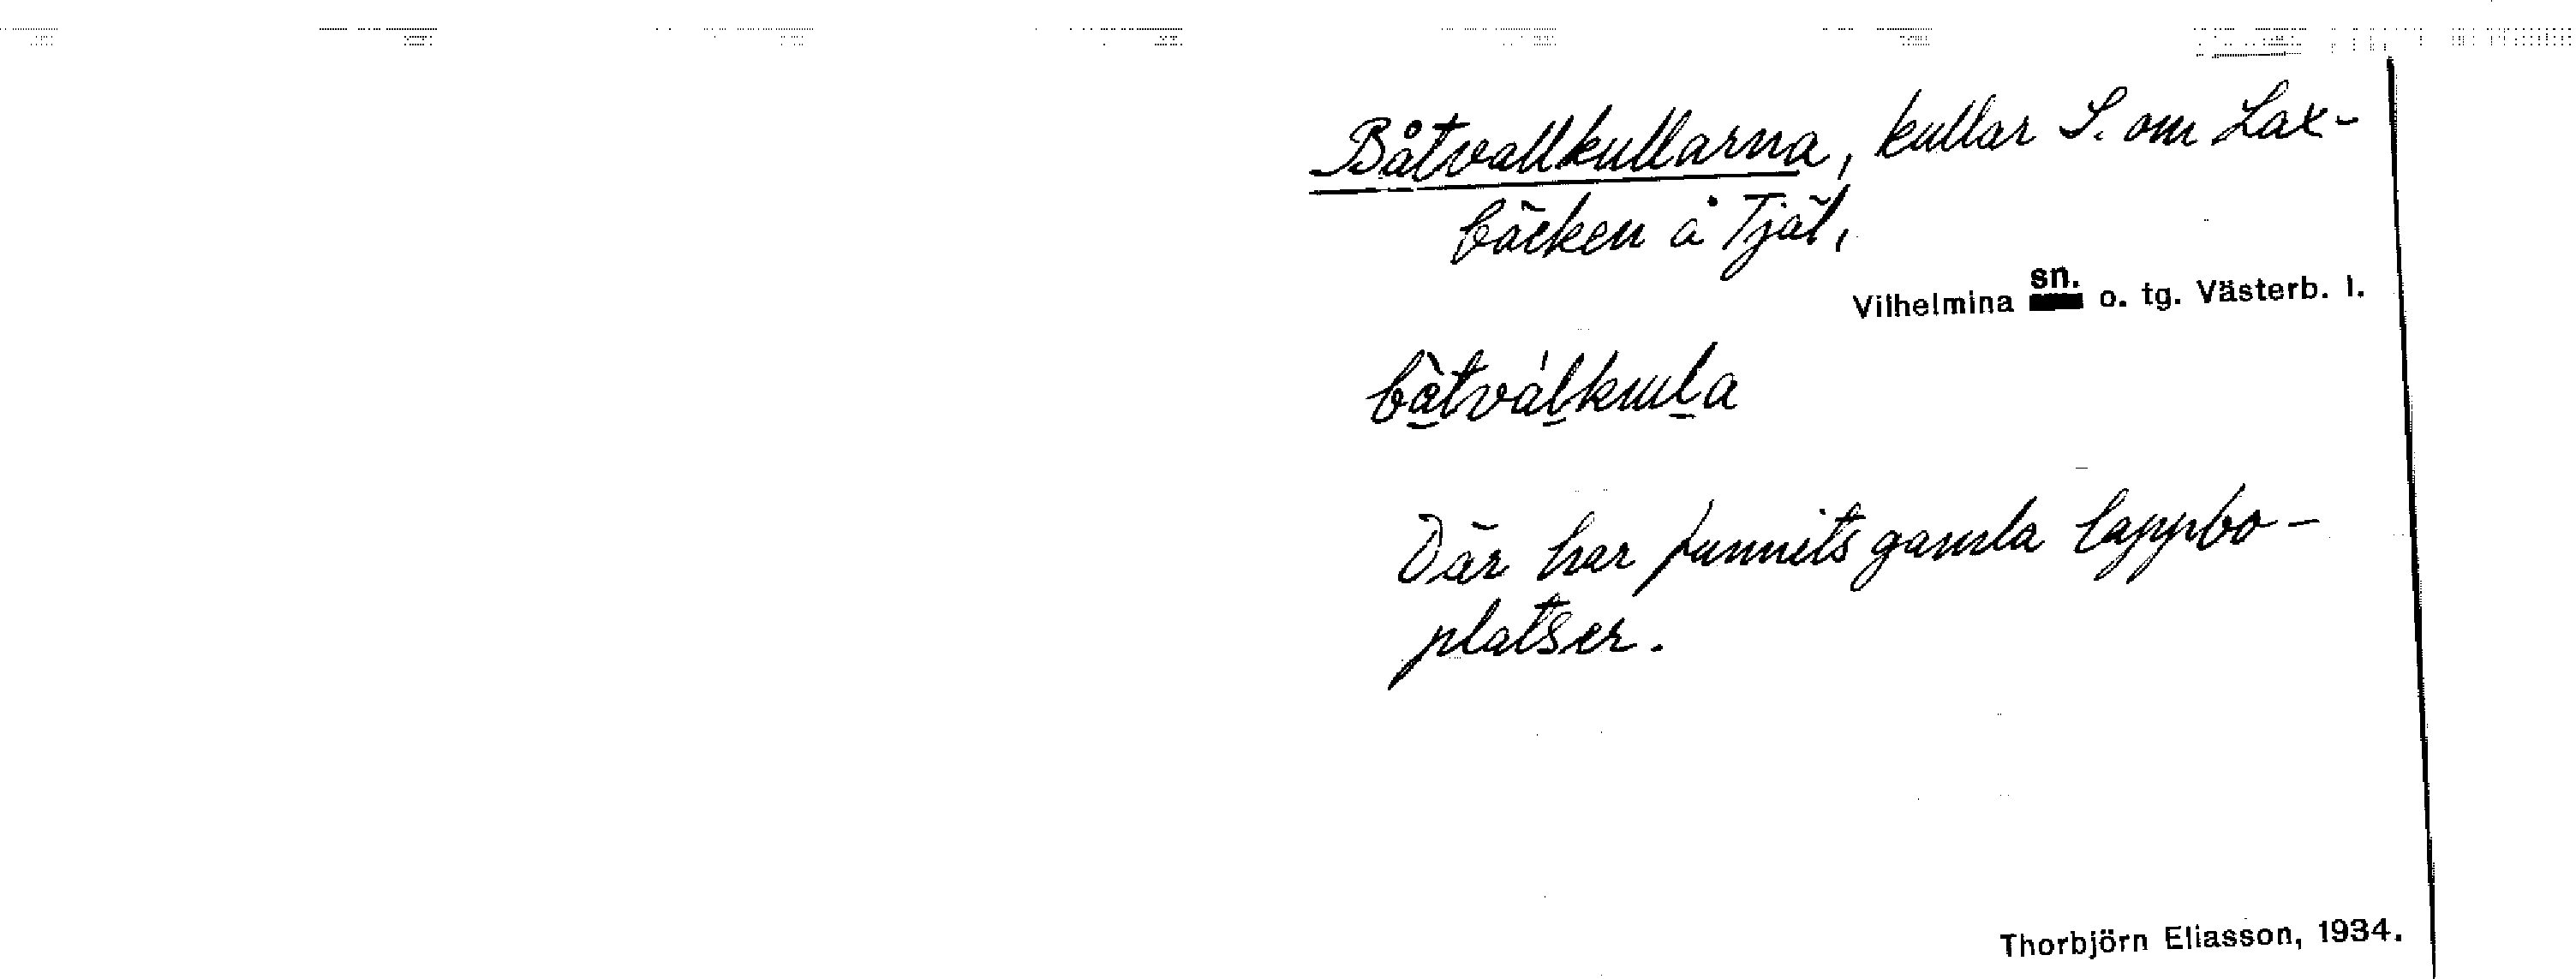 Båtvallkullarna, kullar S. om Lax-
bäcken å Tjäl,
Vilhelmina sn. o. tg. Västerb. l.
bå̀tválkula
Där har funnits gamla lappbo-
platser.
Thorbjörn Eliasson, 1934.